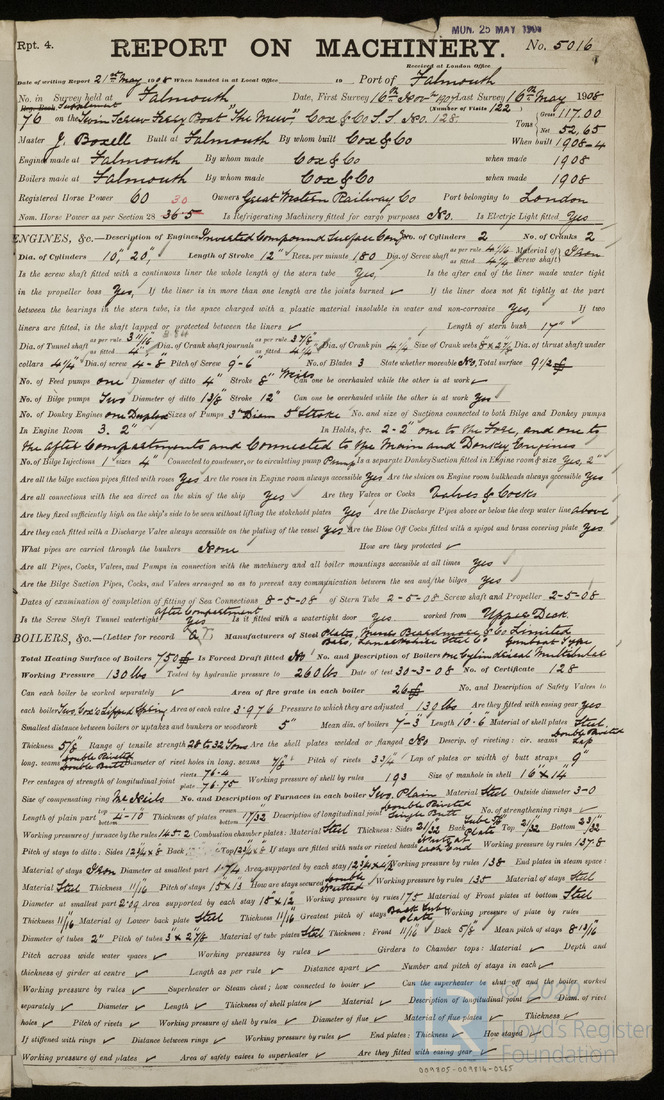 MON. 25 MAY 1908
Rpt. 4. REPORT ON MACHINERY. No. 5016
Received at London Office
Date of writing Report 21st May 1908 When handed in at Local Office 19 Port of Falmouth
No. in Survey held at Falmouth Date, First Survey 16th Novr 1907 Last Survey 16th May 1908
Reg. Book Supplement (Number of Visits 122)
76 on the Twin Screw Ferry Boat "The Mew", Cox & Co S.S. No. 128. Tons Gross 117.00 Net 52.65
Master J. Boxell Built at Falmouth By whom built Cox & Co When built 1908-4
Engines made at Falmouth By whom made Cox & Co when made 1908
Boilers made at Falmouth By whom made Cox & Co when made 1908
Registered Horse Power 60 30 Owners Great Western Railway Co Port belonging to London
Nom. Horse Power as per Section 28 36.5 Is Refrigerating Machinery fitted for cargo purposes No. Is Electric Light fitted Yes
ENGINES, &c.—Description of Engines Inverted Compound Surface Cong No. of Cylinders 2 No. of Cranks 2
Dia. of Cylinders 10", 20" Length of Stroke 12" Revs. per minute 180 Dia. of Screw shaft as per rule as fitted 4 1/4 Material of screw shaft Iron
Is the screw shaft fitted with a continuous liner the whole length of the stern tube Yes, Is the after end of the liner made water tight
in the propeller boss Yes, If the liner is in more than one length are the joints burned ✓ If the liner does not fit tightly at the part
between the bearings in the stern tube, is the space charged with a plastic material insoluble in water and non-corrosive Yes, If two
liners are fitted, is the shaft lapped or protected between the liners ✓ Length of stern bush 17"
Dia. of Tunnel shaft as per rule 3 11/16 as fitted 4" Dia. of Crank shaft journals as per rule 3 7/8 as fitted 4 1/4 Dia. of Crank pin 4 1/4 Size of Crank webs 8" x 2 7/8 Dia. of thrust shaft under
collars 4 1/4" Dia. of screw 4-8 Pitch of Screw 9-6" No. of Blades 3 State whether moveable No. Total surface 9 1/2 sq ft
No. of Feed pumps one Diameter of ditto 4" Stroke 8" Weirs Can one be overhauled while the other is at work ✓
No. of Bilge pumps Two Diameter of ditto 1 3/8 Stroke 12" Can one be overhauled while the other is at work Yes
No. of Donkey Engines one Duplex Sizes of Pumps 3" Diam 5" Stroke No. and size of Suctions connected to both Bilge and Donkey pumps
In Engine Room 3. 2" In Holds, &c. 2-2" one to the Fore, and one to
the after Compartments and Connected to the Main and Donkey Engines
No. of Bilge Injections 1 sizes 4" Connected to condenser, or to circulating pump Pump Is a separate Donkey Suction fitted in Engine room & size Yes, 2"
Are all the bilge suction pipes fitted with roses Yes Are the roses in Engine room always accessible Yes Are the sluices on Engine room bulkheads always accessible Yes
Are all connections with the sea direct on the skin of the ship Yes Are they Valves or Cocks Valves & Cocks
Are they fixed sufficiently high on the ship's side to be seen without lifting the stokehold plates Yes Are the Discharge Pipes above or below the deep water line above
Are they each fitted with a Discharge Valve always accessible on the plating of the vessel Yes Are the Blow Off Cocks fitted with a spigot and brass covering plate Yes
What pipes are carried through the bunkers None How are they protected ✓
Are all Pipes, Cocks, Valves, and Pumps in connection with the machinery and all boiler mountings accessible at all times Yes
Are the Bilge Suction Pipes, Cocks, and Valves arranged so as to prevent any communication between the sea and the bilges Yes
Dates of examination of completion of fitting of Sea Connections 8-5-08 of Stern Tube 2-5-08 Screw shaft and Propeller 2-5-08
Is the Screw Shaft Tunnel watertight after Compartment Yes Is it fitted with a watertight door Yes worked from Upper Deck
BOILERS, &c.—(Letter for record Manufacturers of Steel Plates, Beardmore & Co Limited
Total Heating Surface of Boilers 750 sq ft Is Forced Draft fitted No No. and Description of Boilers one Cylindrical Multitubular
Working Pressure 130 lbs Tested by hydraulic pressure to 260 lbs Date of test 30-3-08 No. of Certificate 128
Can each boiler be worked separately ✓ Area of fire grate in each boiler 26 sq ft No. and Description of Safety Valves to
each boiler Two, Spring Area of each valve 3.976 Pressure to which they are adjusted 130 lbs Are they fitted with easing gear Yes
Smallest distance between boilers or uptakes and bunkers or woodwork 5" Mean dia. of boilers 7-3" Length 10-6" Material of shell plates Steel
Thickness 5/8" Range of tensile strength 28 to 32 Tons Are the shell plates welded or flanged No Descrip. of riveting: cir. seams Double Riveted Lap
long. seams Double Riveted Double Butt Diameter of rivet holes in long. seams Pitch of rivets 3 3/4" Lap of plates or width of butt straps 9"
Per centages of strength of longitudinal joint rivets 76.4 plate 76.75 Working pressure of shell by rules 193 Size of manhole in shell 16" x 14"
Size of compensating ring No. and Description of Furnaces in each boiler Two, Plain Material Steel Outside diameter 3-0
Length of plain part top bottom 4-10" Thickness of plates crown bottom 17/32 Description of longitudinal joint Double Riveted Single Butt No. of strengthening rings ✓
Working pressure of furnace by the rules 145.2 Combustion chamber plates: Material Steel Thickness: Sides 21/32 Back Tube Plate Top 21/32 Bottom 23/32
Pitch of stays to ditto: Sides 12 3/4 x 8 Back Top 12 3/4 x 8 If stays are fitted with nuts or riveted heads Nuts at each End Working pressure by rules 137.8
Material of stays Iron Diameter at smallest part 1.74 Area supported by each stay Working pressure by rules 138 End plates in steam space:
Material Steel Thickness 11/16 Pitch of stays 15 x 13 How are stays secured Double Nutted Working pressure by rules 135 Material of stays Steel
Diameter at smallest part Area supported by each stay 15 x 12 Working pressure by rules 175 Material of Front plates at bottom Steel
Thickness 11/16 Material of Lower back plate Steel Thickness 11/16 Greatest pitch of stays Back Tube Plate Working pressure of plate by rules
Diameter of tubes 2" Pitch of tubes 3" x 2 7/8 Material of tube plates Steel Thickness: Front 11/16 Back 5/8" Mean pitch of stays 8 13/16
Pitch across wide water spaces ✓ Working pressures by rules ✓ Girders to Chamber tops: Material ✓ Depth and
thickness of girder at centre ✓ Length as per rule ✓ Distance apart ✓ Number and pitch of stays in each ✓
Working pressure by rules ✓ Superheater or Steam chest; how connected to boiler ✓ Can the superheater be shut off and the boiler worked
separately ✓ Diameter ✓ Length ✓ Thickness of shell plates ✓ Material ✓ Description of longitudinal joint ✓ Diam. of rivet
holes ✓ Pitch of rivets ✓ Working pressure of shell by rules ✓ Diameter of flue ✓ Material of flue plates ✓ Thickness ✓
If stiffened with rings ✓ Distance between rings ✓ Working pressure by rules ✓ End plates: Thickness ✓ How stayed
Working pressure of end plates ✓ Area of safety valves to superheater ✓ Are they fitted with easing gear ✓
© 2020
LR
Lloyd's Register
Foundation
009805-009814-0265